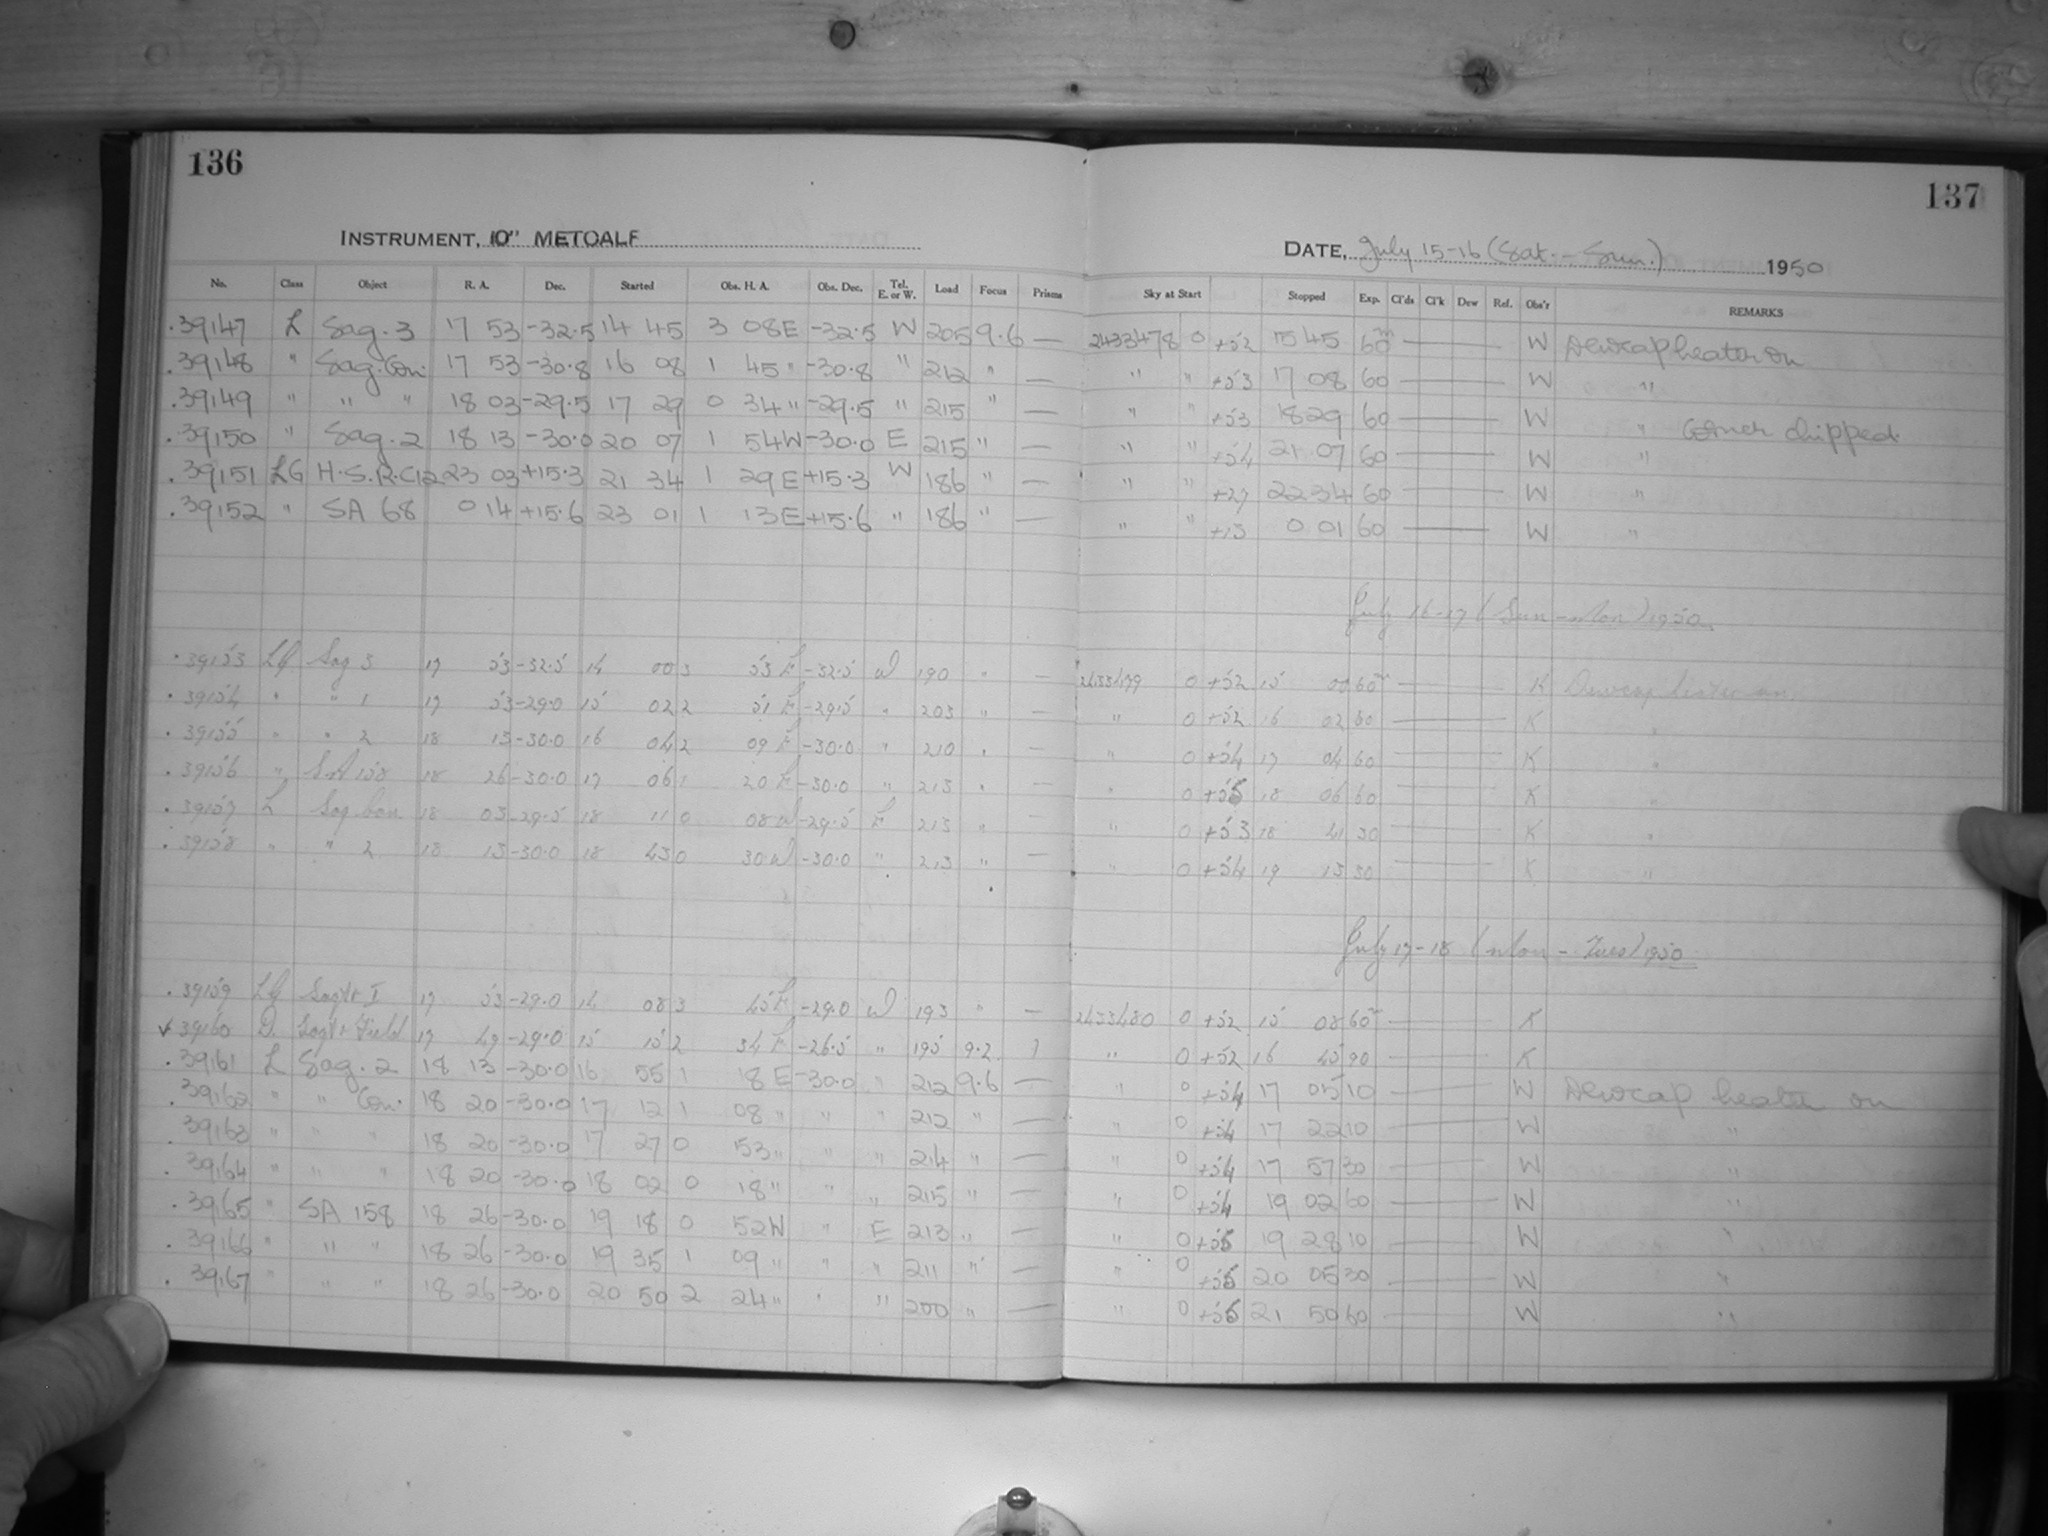 136
137
INSTRUMENT, 10" METCALF
DATE, July 15-16 (Sat. - Sun.) 1950
No. Class Object R. A. Dec. Started Obs. H. A. Obs. Dec. Tel. E. or W. Load Focus Prisms Sky at Start Stopped Exp. Cl'ds Cl'k Dew Ref. Obs'r REMARKS
.39147 L Sag. 3 17 53 -32.5 14 45 3 08E -32.5 W 205 9.6 — 2433478 0 +52 15 45 60m W Dewcap heater on
.39148 " Sag. Con. 17 53 -30.8 16 08 1 45 " -30.8 " 212 " — " " +53 17 08 60 W "
.39149 " " " 18 03 -29.5 17 29 0 34 " -29.5 " 215 " — " " +53 18 29 60 W " Corner chipped.
.39150 " Sag. 2 18 13 -30.0 20 07 1 54W -30.0 E 215 " — " " +54 21 07 60 W "
.39151 LG H.S.R.C12 23 03 +15.3 21 34 1 29E +15.3 W 186 " — " " +27 22 34 60 W "
.39152 " SA 68 0 14 +15.6 23 01 1 13E +15.6 " 186 " — " " +13 0 01 60 W "
July 16-17 (Sun - Mon) 1950.
.39153 LG Sag 3 17 53 -32.5 14 00 3 53 E -32.5 W 190 " — 2433479 0 +52 15 00 60m K Dewcap heater on.
.39154 " " 1 17 53 -29.0 15 02 2 51 E -29.5 " 203 " — " 0 +52 16 02 60 K "
.39155 " " 2 18 13 -30.0 16 04 2 09 E -30.0 " 210 " — " 0 +54 17 04 60 K "
.39156 " SA 158 18 26 -30.0 17 06 1 20 E -30.0 " 213 " — " 0 +55 18 06 60 K "
.39157 L Sag. Con 18 03 -29.5 18 11 0 08 W -29.5 E 213 " — " 0 +53 18 41 30 K "
.39158 " " 2 18 13 -30.0 18 43 0 30 W -30.0 " 213 " — " 0 +54 19 13 30 K "
July 17-18 (Mon - Tues) 1950
.39159 LG Sagtr I 17 53 -29.0 14 08 3 45 E -29.0 W 193 " — 2433480 0 +52 15 08 60m K
✓ 39160 D. Sagtr Field 17 49 -29.0 15 15 2 34 E -26.5 " 195 9.2 1 " 0 +52 16 45 90 K
.39161 L Sag. 2 18 13 -30.0 16 55 1 18 E -30.0 " 212 9.6 — " 0 +54 17 05 10 W Dewcap heater on
.39162 " " Con. 18 20 -30.0 17 12 1 08 " " " 212 " — " 0 +54 17 22 10 W "
.39163 " " " 18 20 -30.0 17 27 0 53 " " " 214 " — " 0 +54 17 57 30 W "
.39164 " " " 18 20 -30.0 18 02 0 18 " " " 215 " — " 0 +54 19 02 60 W "
.39165 " SA 158 18 26 -30.0 19 18 0 52W " E 213 " — " 0 +55 19 28 10 W "
.39166 " " " 18 26 -30.0 19 35 1 09 " " " 211 " — " 0 +55 20 05 30 W "
.39167 " " " 18 26 -30.0 20 50 2 24 " " " 200 " — " 0 +55 21 50 60 W "